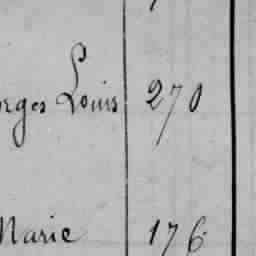 orges Louis 270
Marie 176